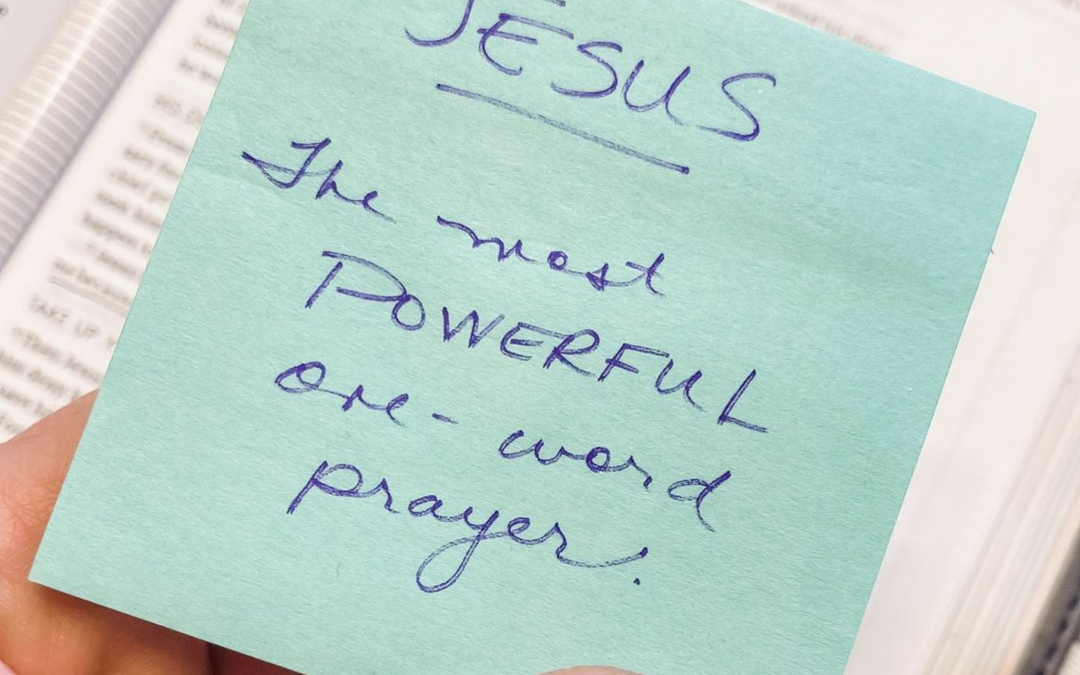 JESUS
The most
POWERFUL
one-word
prayer.
TAKE UP